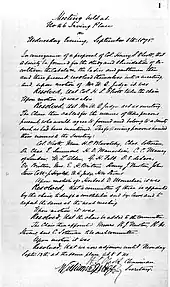 1
Meeting held at
No 46 Irving Place
on
Wednesday Evening, September 8th 1875
In consequence of a proposal of Col. Henry S. Olcott, that
a Society be formed for the study and elucidation of Oc-
cultism, the Cabala &c, the ladies and gentlemen then
and there present resolved themselves into a meeting
and, upon motion of Mr W. Q. Judge it was
Resolved, that Col. H. S. Olcott take the chair.
Upon motion it was also
Resolved, that Mr W. Q. Judge act as secretary.
The Chair then called for the names of the persons
present, who would agree to found and belong to a Society
such as had been mentioned. The following persons handed
their names to the Secretary:
Col. Olcott, Mme H. P. Blavatsky, Chas. Sotheran,
Dr Chas. E. Simmons, H. D. Monachesi, C. C. Massey
of London, W. L. Alden, G. H. Felt, D. E. de Lara,
Dr Britten, Mrs E. H. Britten, Henry J. Newton, John
Storer Cobb, J. Hyslop, W. Q. Judge, H. M. Stevens
Upon motion of Herbert D. Monachesi, it was
Resolved, that a committee of three be appointed
by the chair, to draft a constitution and by laws and to
report the same at the next meeting.
Upon motion it was
Resolved, that the chair be added to the Committee.
The Chair then appointed Messrs H. J. Newton, H. M.
Stevens and C. Sotheran to be such Committee.
Upon motion it was
Resolved, that we now adjourn until Monday
Sept. 13th at the same place, at 8 P.M.
Chairman
William Q Judge
Secretary.